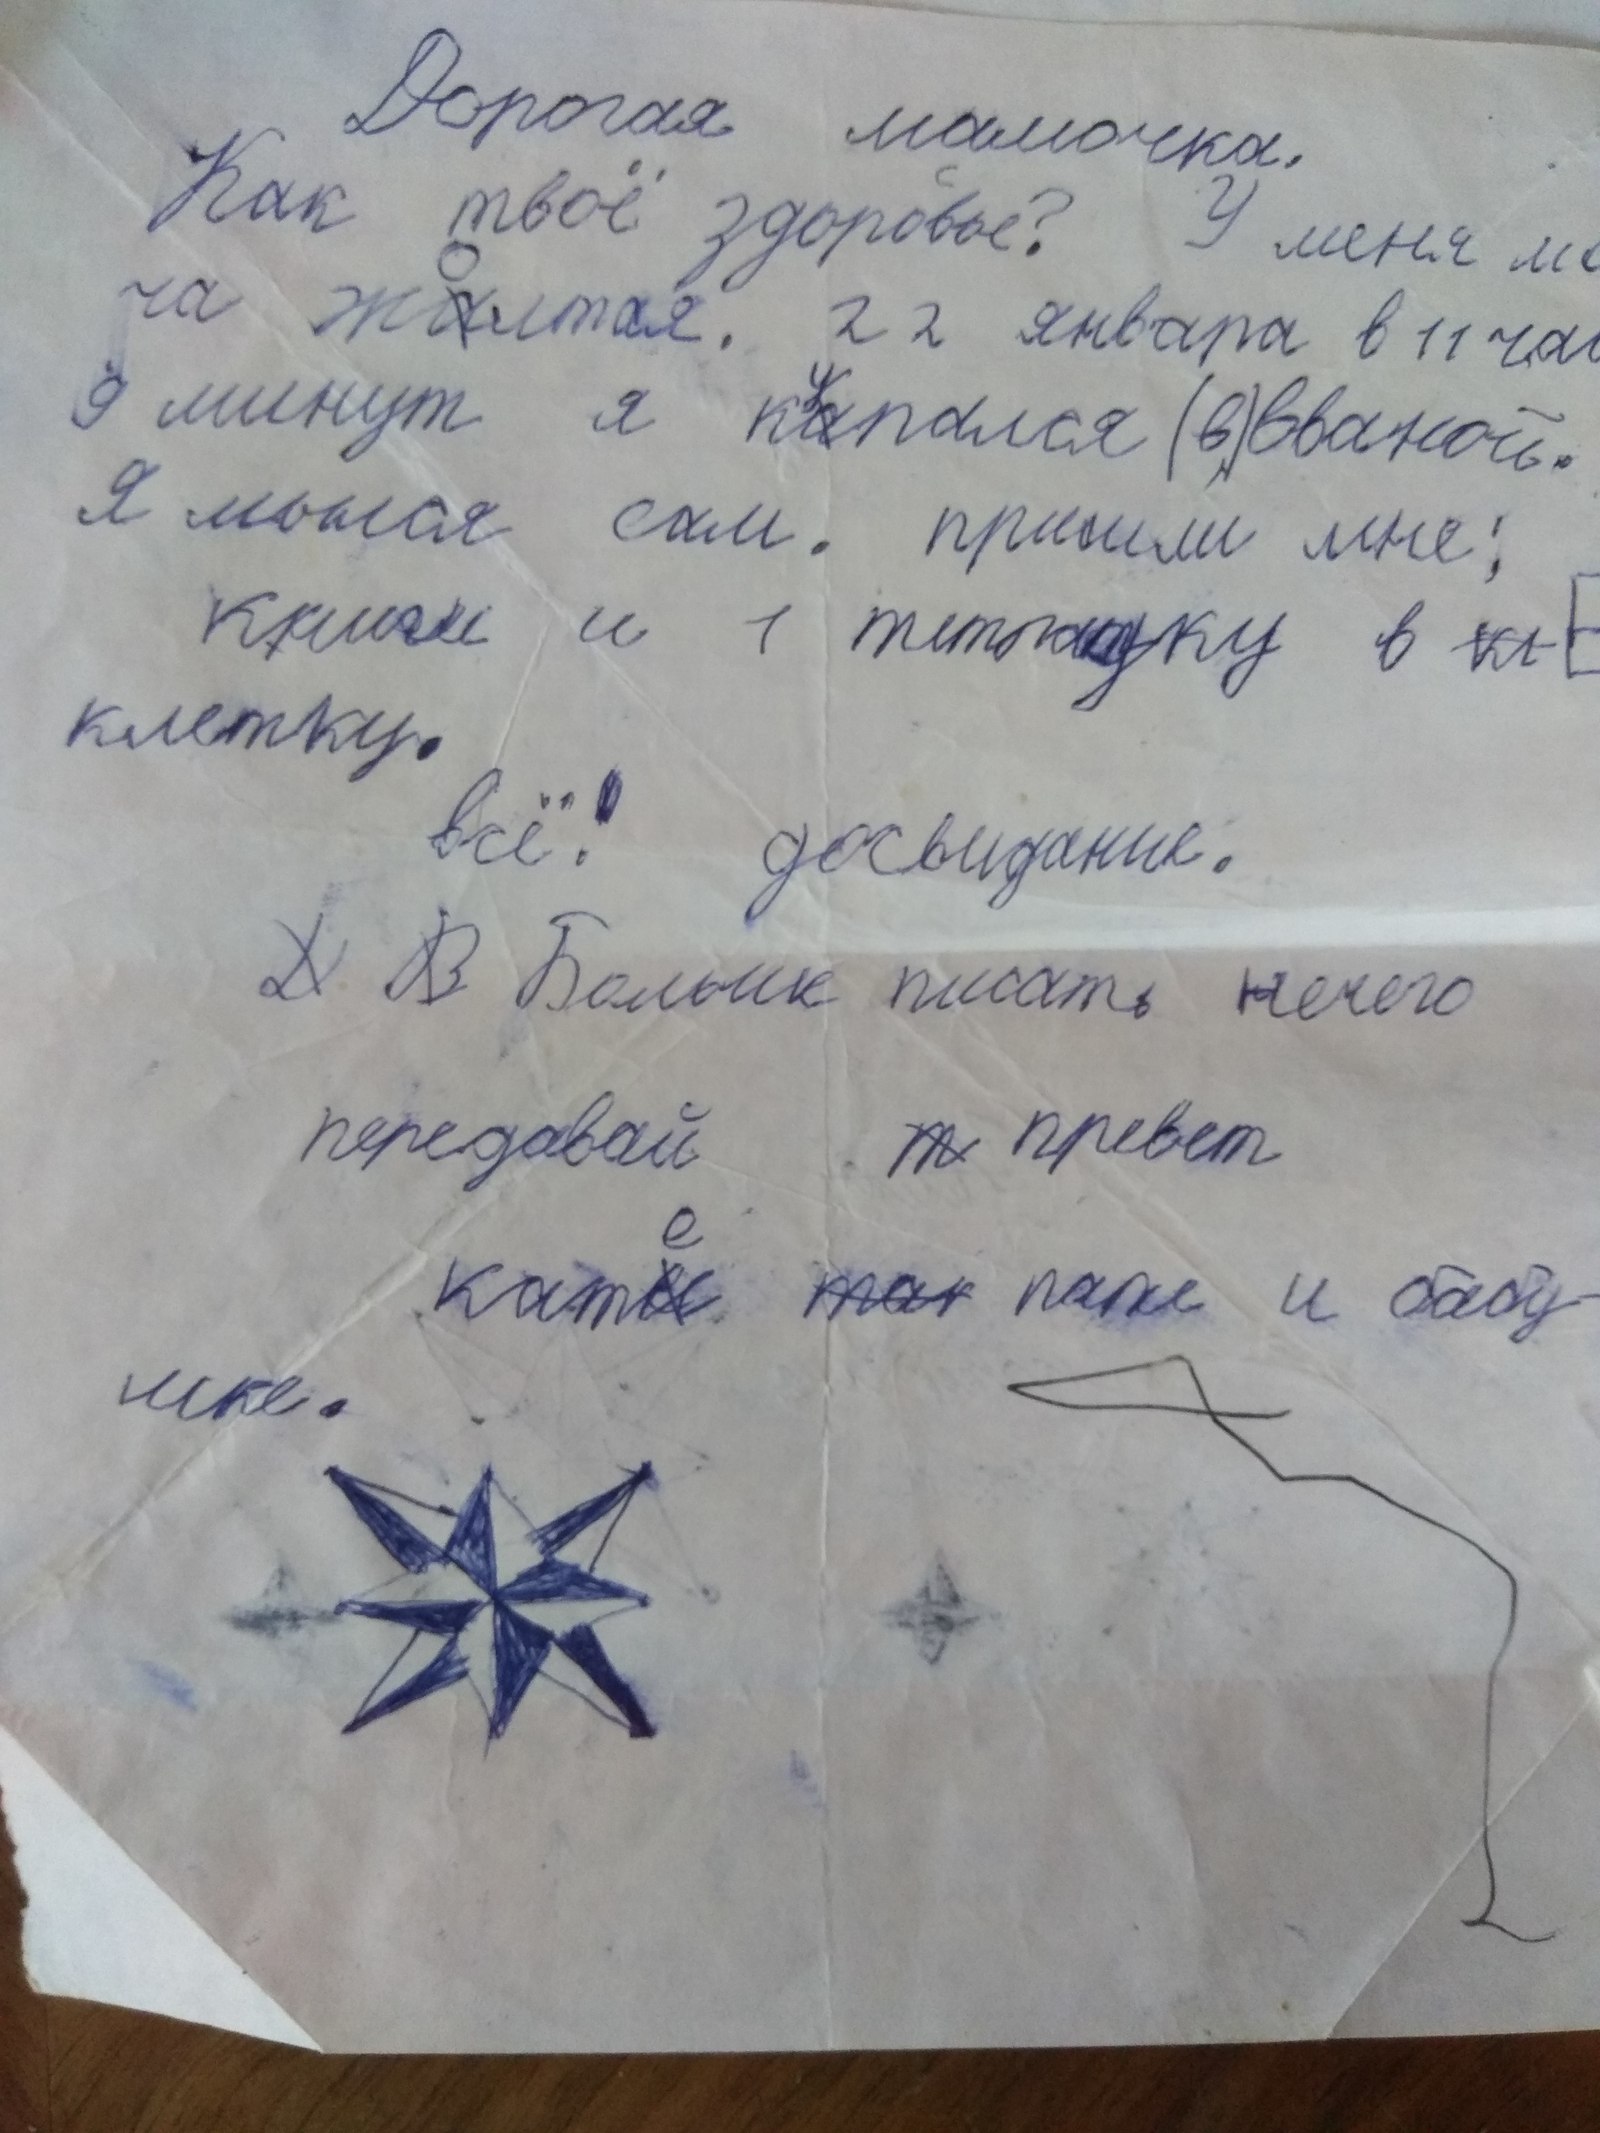 Дорогая мамочка.
Как твоё здоровье? У меня мо
ча жолтая. 22 январа в 11 час
9 минут я купался (в) вваной.
Я мылся сам. пришли мне:
книги и 1 тетратку в кл
клетку.
всё! досвидание.
Д В Больше писать нечего
передавай т превет
кате так папе и бабу-
шке.